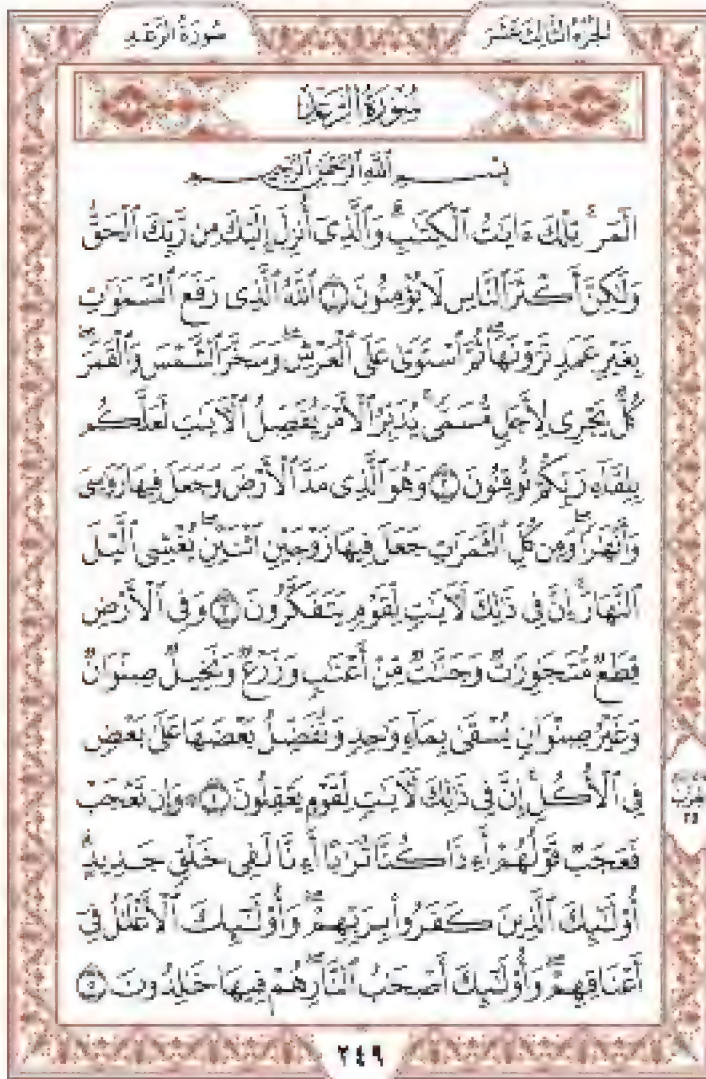 سُورَةُ الرَّعْدِ
الجُزْءُ الثَّالِثَ عَشَرَ
سُورَةُ الرَّعْدِ
بِسْمِ ٱللَّهِ ٱلرَّحْمَٰنِ ٱلرَّحِيمِ
الٓمٓر ۚ تِلْكَ ءَايَٰتُ ٱلْكِتَٰبِ ۗ وَٱلَّذِىٓ أُنزِلَ إِلَيْكَ مِن رَّبِّكَ ٱلْحَقُّ
وَلَٰكِنَّ أَكْثَرَ ٱلنَّاسِ لَا يُؤْمِنُونَ ١ ٱللَّهُ ٱلَّذِى رَفَعَ ٱلسَّمَٰوَٰتِ
بِغَيْرِ عَمَدٍ تَرَوْنَهَا ۖ ثُمَّ ٱسْتَوَىٰ عَلَى ٱلْعَرْشِ ۖ وَسَخَّرَ ٱلشَّمْسَ وَٱلْقَمَرَ ۖ
كُلٌّ يَجْرِى لِأَجَلٍ مُّسَمًّى ۚ يُدَبِّرُ ٱلْأَمْرَ يُفَصِّلُ ٱلْءَايَٰتِ لَعَلَّكُم
بِلِقَآءِ رَبِّكُمْ تُوقِنُونَ ٢ وَهُوَ ٱلَّذِى مَدَّ ٱلْأَرْضَ وَجَعَلَ فِيهَا رَوَٰسِىَ
وَأَنْهَٰرًا ۖ وَمِن كُلِّ ٱلثَّمَرَٰتِ جَعَلَ فِيهَا زَوْجَيْنِ ٱثْنَيْنِ ۖ يُغْشِى ٱلَّيْلَ
ٱلنَّهَارَ ۚ إِنَّ فِى ذَٰلِكَ لَءَايَٰتٍ لِّقَوْمٍ يَتَفَكَّرُونَ ٣ وَفِى ٱلْأَرْضِ
قِطَعٌ مُّتَجَٰوِرَٰتٌ وَجَنَّٰتٌ مِّنْ أَعْنَٰبٍ وَزَرْعٌ وَنَخِيلٌ صِنْوَانٌ
وَغَيْرُ صِنْوَانٍ يُسْقَىٰ بِمَآءٍ وَٰحِدٍ وَنُفَضِّلُ بَعْضَهَا عَلَىٰ بَعْضٍ
فِى ٱلْأُكُلِ ۚ إِنَّ فِى ذَٰلِكَ لَءَايَٰتٍ لِّقَوْمٍ يَعْقِلُونَ ٤ ۞ وَإِن تَعْجَبْ
فَعَجَبٌ قَوْلُهُمْ أَءِذَا كُنَّا تُرَٰبًا أَءِنَّا لَفِى خَلْقٍ جَدِيدٍ ۗ
أُو۟لَٰٓئِكَ ٱلَّذِينَ كَفَرُوا۟ بِرَبِّهِمْ ۖ وَأُو۟لَٰٓئِكَ ٱلْأَغْلَٰلُ فِىٓ
أَعْنَاقِهِمْ ۖ وَأُو۟لَٰٓئِكَ أَصْحَٰبُ ٱلنَّارِ ۖ هُمْ فِيهَا خَٰلِدُونَ ٥
الحزب
٢٥
٢٤٩